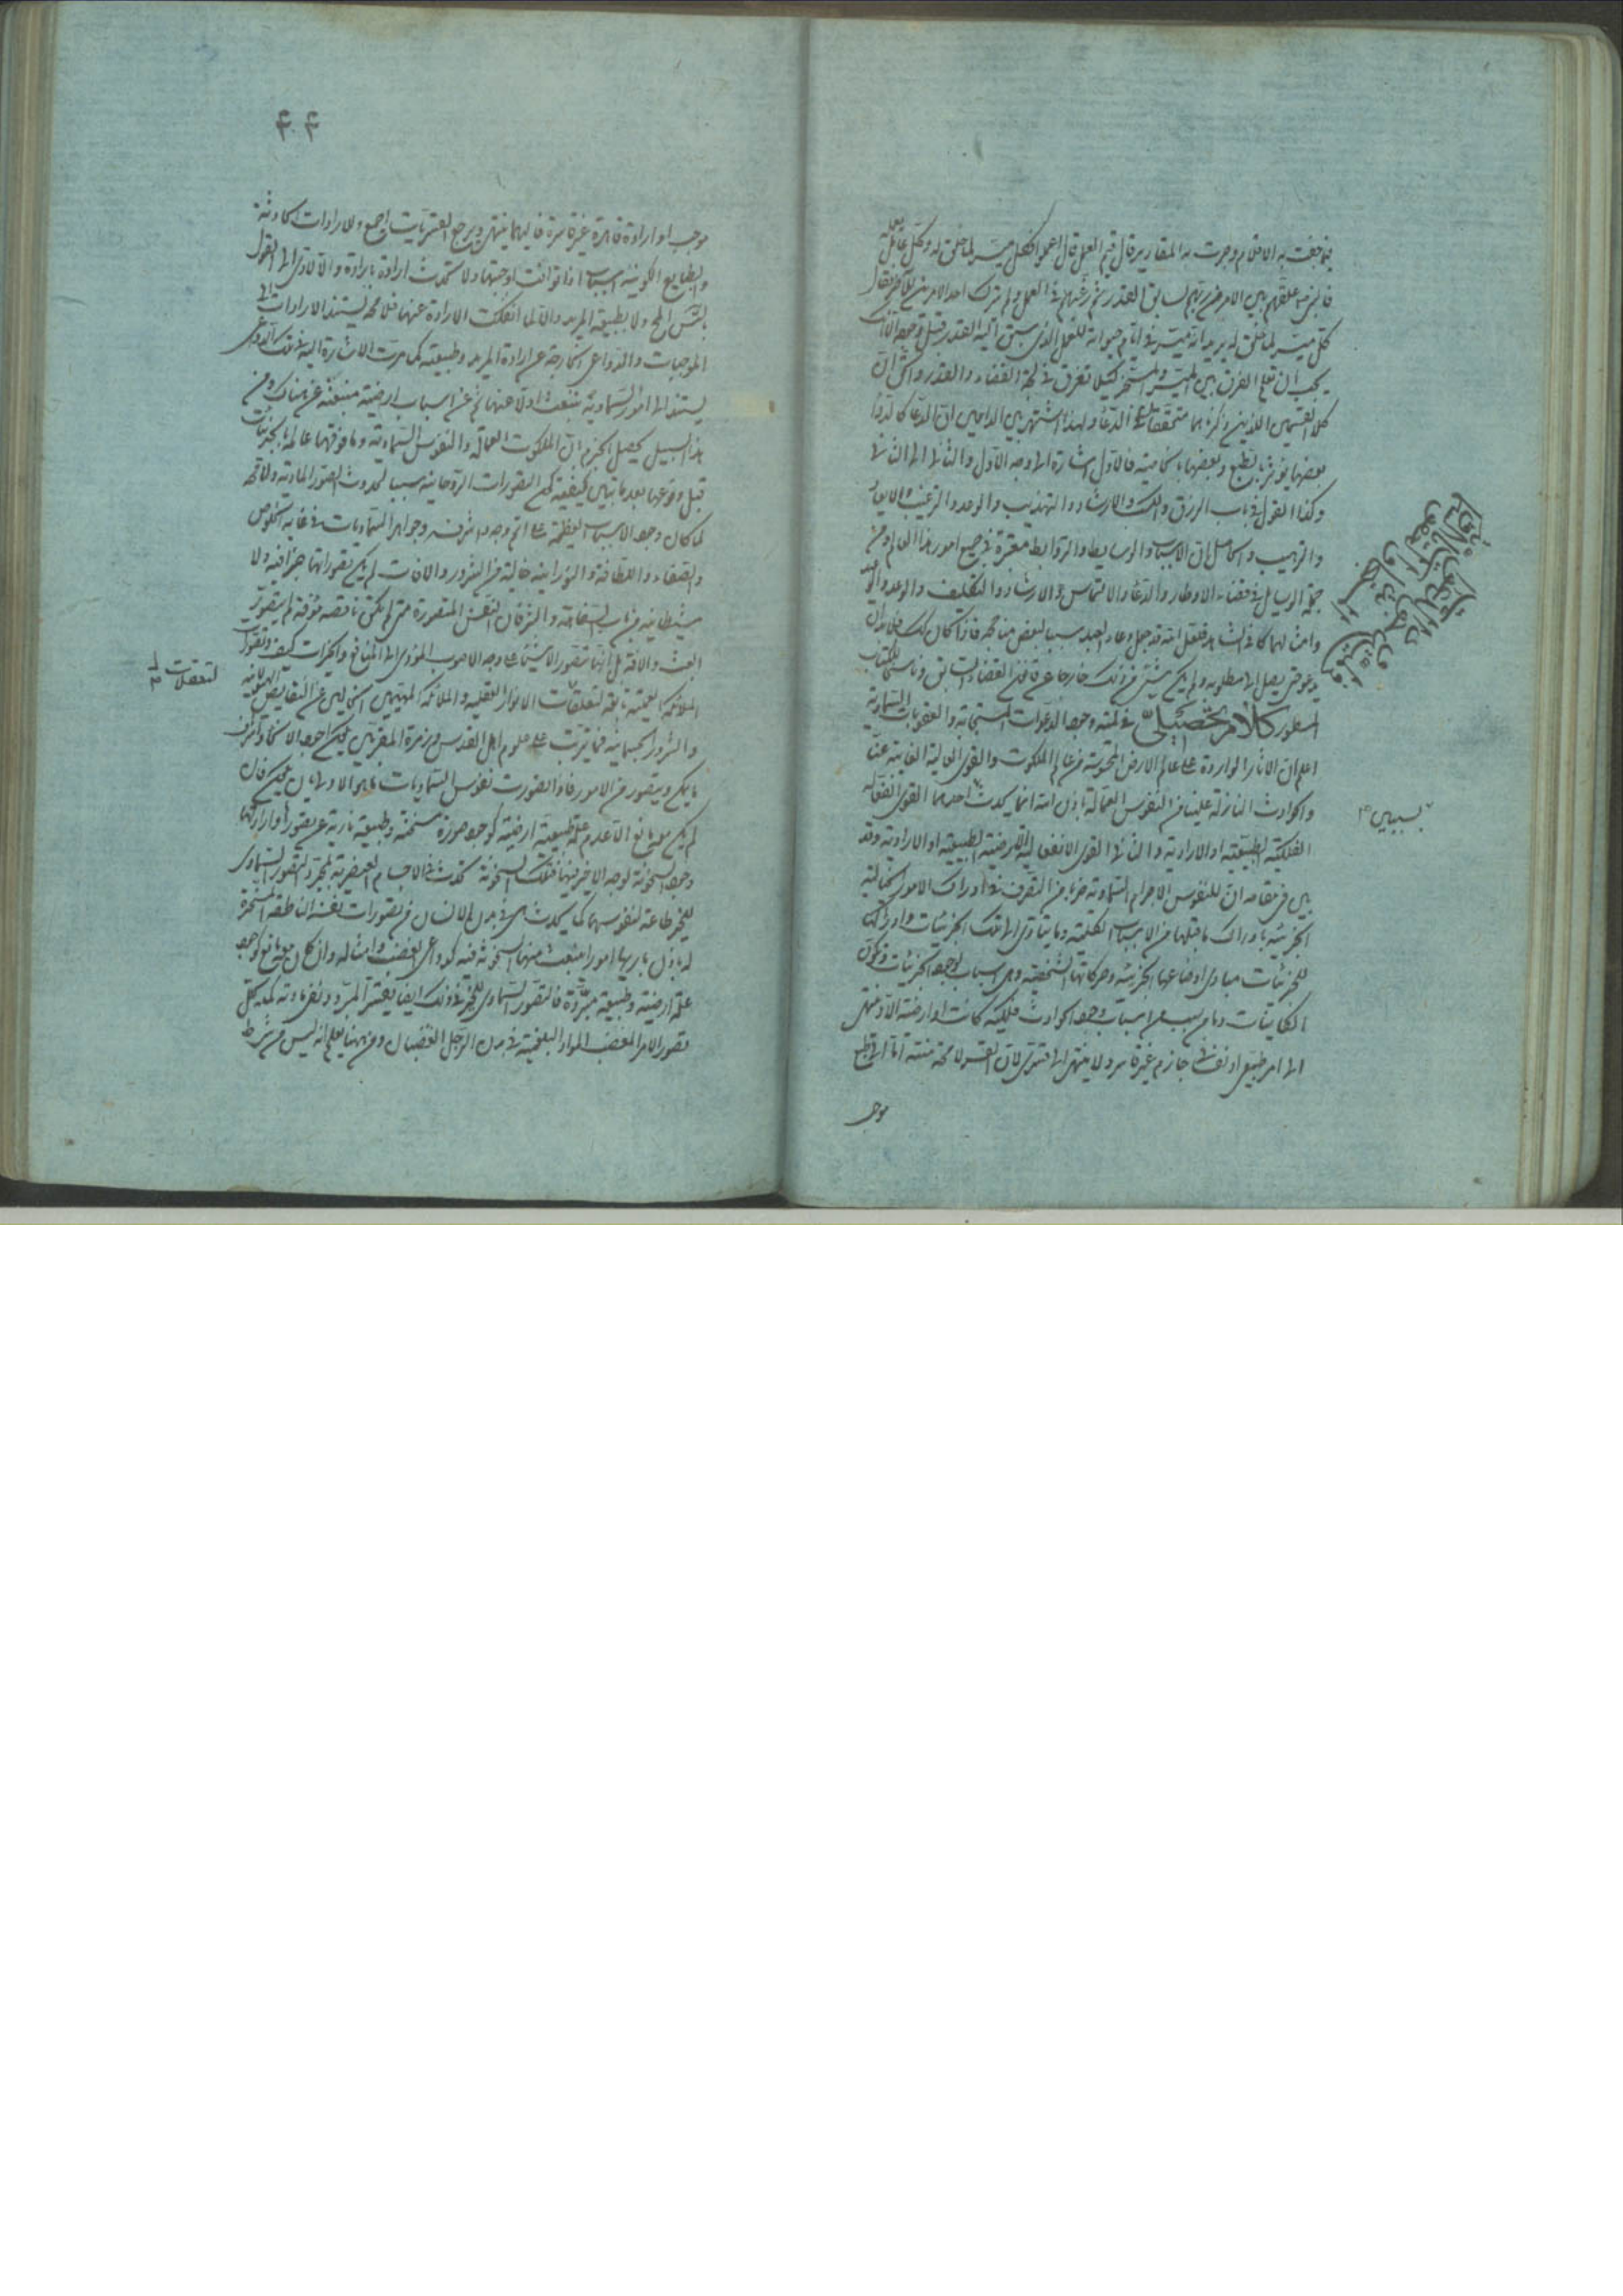 فيما جفت به الاقلام وجرت به المقادير قال ففيم العمل قال اعملوا فكل ميسر لما خلق له وكل عامل بعمله
فالنبي علقهم بين الامرين رهبهم بسابق القدر ثم رغبهم في العمل ولم يترك احد الامرين للآخر فقال
كل ميسر لما خلق له يريد انه ميسر في ايام حيوته للعمل الذي سبق اليه القدر قبل وجوده الا انك
يجب ان تعلم الفرق بين الميسر والمسخر كيلا تغرق في لجة القضاء والقدر والحق ان
كلا القسمين اللذين ذكرناهما متحققان في الدعاء ولهذا اشتهر بين الداعين ان الدعا كالدواء
بعضها يؤثر بالطبع وبعضها بالخاصية فالاول اشارة الى وجه الاول والثاني الى الثاني
وكذا القول في باب الرزق والكسب والارشاد والتهذيب والوعد والترغيب والايعاد
والترهيب والحاصل ان الاسباب والوسايط والروابط معتبرة في جميع امور هذا العالم ومن
جملة الوسايل في قضاء الاوطار والدعاء والالتماس والارشاد والتكليف والوعد والوعيد
وامثالها كما في الشاهد فلعل الله قد جعل دعاء العبد سببا لبعض مناجحه فاذا كان كذلك فلا بد ان
يدعو حتى يصل الى مطلوبه ولم يكن شيء من ذلك خارجا عن قانون القضاء السابق وناسخا للكتاب
المسطور كلام تحصيلي في لمية وجود الدعوات المستجابة والعقوبات السماوية
اعلم ان الآثار الواردة على عالم الارض المحوية من عالم الملكوت والقوى العالية الغايبة عنا
والحوادث النازلة علينا من النفوس العمالة باذن الله انما يحدث احدهما القوى الفعالة
الفلكية الطبيعية او الارادية والثاني القوى الانفعالية الارضية الطبيعية او الارادية وقد
بين في مقامه ان للنفوس الاجرام السماوية ضربا من التصرف في ادراك الامور الخيالية
الجزئية بادراك ما قبلها من الاسباب الكلية وما يتادى الى تلك الجزئيات وادراكنا
للجزئيات مبادى اوضاعها الجزئية وحركاتها الشخصية وهي اسباب لوجود الجزئيات وتكون
الكاينات وما من سبب من اسباب وجود الحوادث فلكية كانت او ارضية الا وينتهى
الى امر طبيعي او نفساني جازم غير قاسر ولا ينتهى الى قسرى لان القسر لا محة منته اما الى طبع
موجب
بسببين
موجب او ارادة قاهرة غير قاسرة فاليهما ينتهي ويرجع القسريات اجمع والارادات الحادثة
والطبايع الكونية اسبابا اذا توافت اوجبتها ولا تحدث ارادة بارادة والا لادى الى القول
بالتس المح ولا بطبيعة المريد والا لما انفكت الارادة عنها فلا محه يستند الارادات الى
الموجبات والدواعي الخارجة عن ارادة المريد وطبيعته كما مرت الاشارة اليه في تلك الدواعي
يستند الى امور السماوية تنبعث اولا عنها ثم عن اسباب ارضية منبعثة عن هناك ومن
هذا السبيل يحصل الجزم بان الملكوت العمالة والنفوس السماوية وما فوقها عالمة بالجزئيات
قبل وقوعها بعد ما تبين كيفية كون التصورات الروحانية سببا لحدوث الصور المادية ولا محة
لما كان وجود الاسباب العظيمة على اتم وجه واشرفه وجواهر السماويات في غاية الخلوص
والصفاء واللطافة والنورانية خالية من الشرور والافات لم يكن تصوراتها جزافية ولا
شيطانية من باب السفاهة والشر فان النفس المتصورة متى لم يكن ناقصه مؤفة لم يتصور
العبث والافة بل انما تتصور الاشيا على وجه الاصوب المؤدي الى المنافع والخيرات كيف وتصورات
الملائكة العلمية تابعة لتعلقات الانوار العقلية والملائكة المهيمين الخاليين عن النقايص الهيولانية
لتعقلات
والشرور الجسمانية فما يترتب على علوم اهل القدس وزمرة المقربين يكون احد الانحاء واشرف
ما يمكن ويتصور من الامور فاذا تصورت نفوس السماويات ما هو الاولى بان يكون كان
لم يكن مع مانع الا عدم علة طبيعية ارضية كوجود صورة مسخنة وطبيعة نارية عن تصورها وارادتها
وجود السخونة لوجه الاخر فيها فتلك السخونة تحدث في الاجسام العنصرية بمجرد التصور السماوي
للخير طاعة لنفوسها كما يحدث هي في بدن الانسان من تصورات نفسه الناطقة المسخرة
له باذن باريها امور انبعث منها السخونة فيه كدواعي الغضب وامثاله وان كان مع مانع كوجود
علة ارضية وطبيعة مبردة فالتصور السماوي للخير في ذلك ايضا يقسر المبرد ونفس مادته كما يحلل
تصور الامر المغضب المواد البلغمية في بدن الرجل الغضبان ومن ههنا يعلم انه ليس من شرط